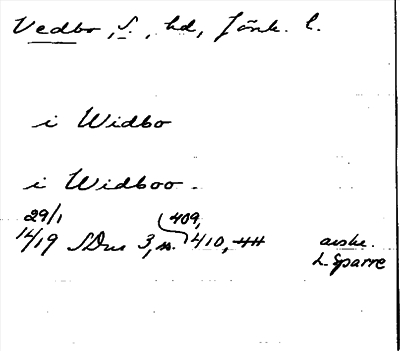 Vedbo, S., hd, Jönk. l.
i Widbo
i Widboo.
29/1 409,
14/19 SDns 3, n. 410, 411 avskr.
L. Sparre